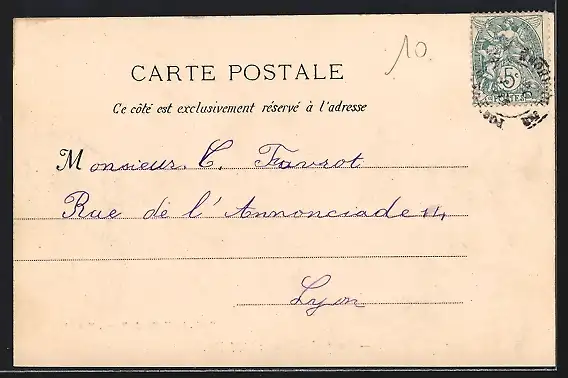 10.
CARTE POSTALE
Ce côté est exclusivement réservé à l'adresse
5c
Monsieur C. Favrot
Rue de l'Annonciade 14
Lyon